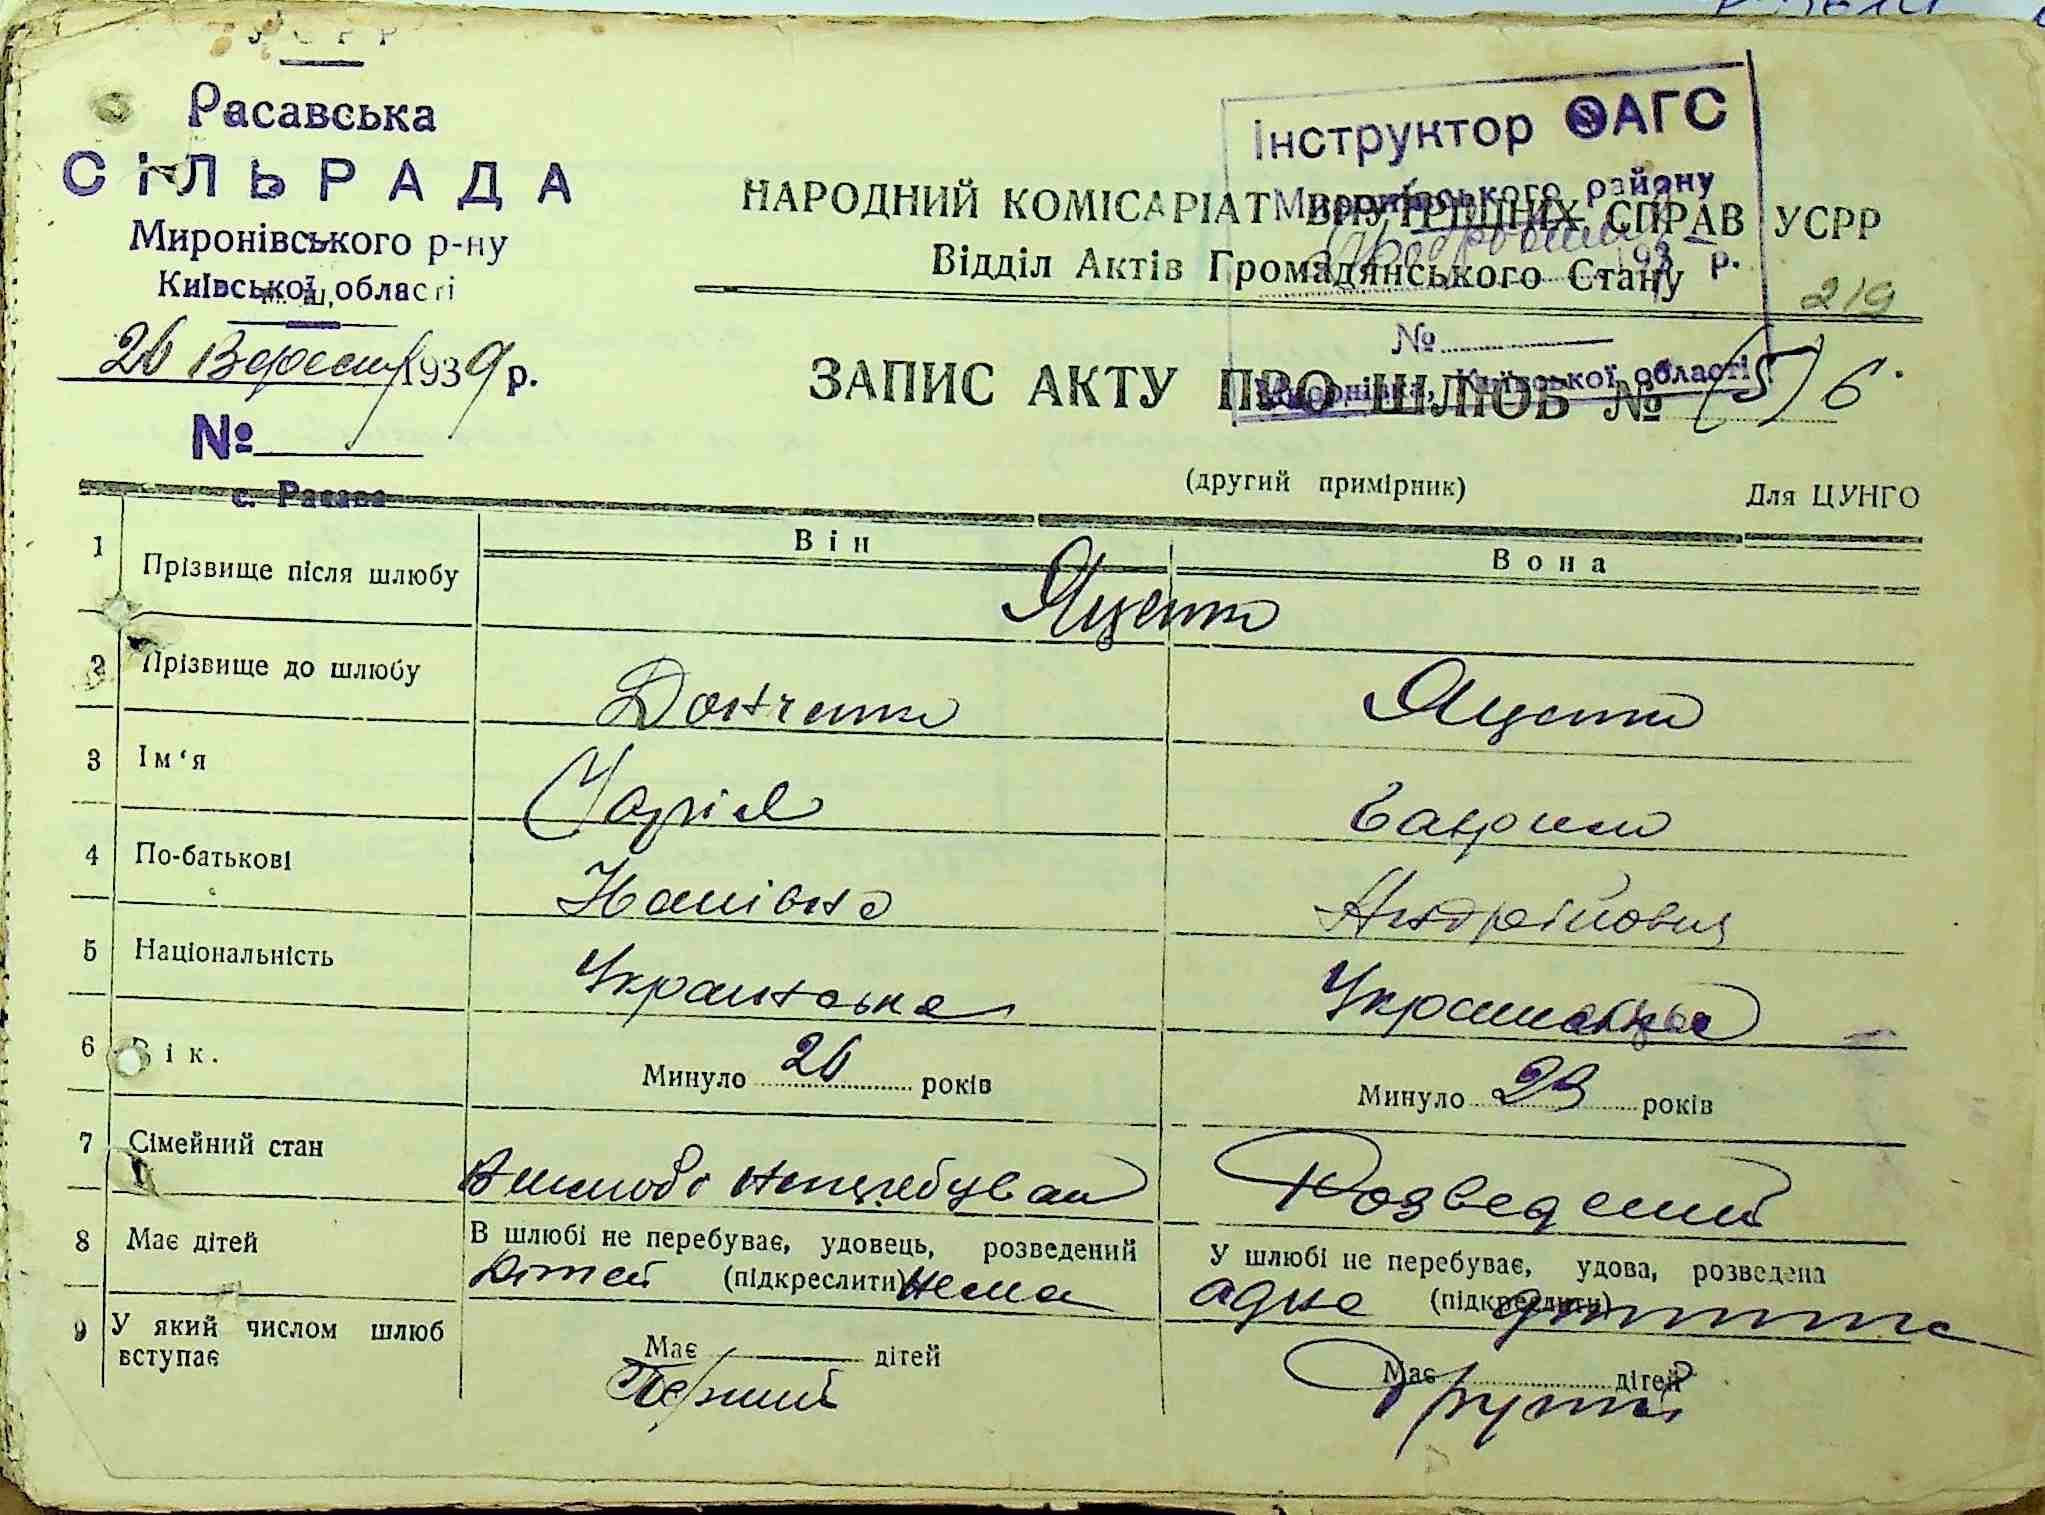 УСРР
Расавська
СІЛЬРАДА
Миронівського р-ну
Київської області
26 Вересня 1939 р.
№
с. Расава
Інструктор ЗАГС
Миронівського району
193 р.
№
Миронівка, Київської області
НАРОДНИЙ КОМІСАРІАТ ВНУТРІШНІХ СПРАВ УСРР
Відділ Актів Громадянського Стану
219
ЗАПИС АКТУ ПРО ШЛЮБ № (5) 6
(другий примірник) Для ЦУНГО
Він Вона
1 Прізвище після шлюбу Яценко
2 Прізвище до шлюбу Донченко Яценко
3 Ім‘я Марія Гаврило
4 По-батькові Андрійович
5 Національність Українська
6 Вік. Минуло 26 років Минуло 29 років
7 Сімейний стан Вшлюбі неперебував Розведений
8 Має дітей В шлюбі не перебуває, удовець, розведений У шлюбі не перебуває, удова, розведена
Дітей (підкреслити) нема одна (підкреслити) дитина
9 У який числом шлюб вступає Має дітей Має дітей
Перший Другий